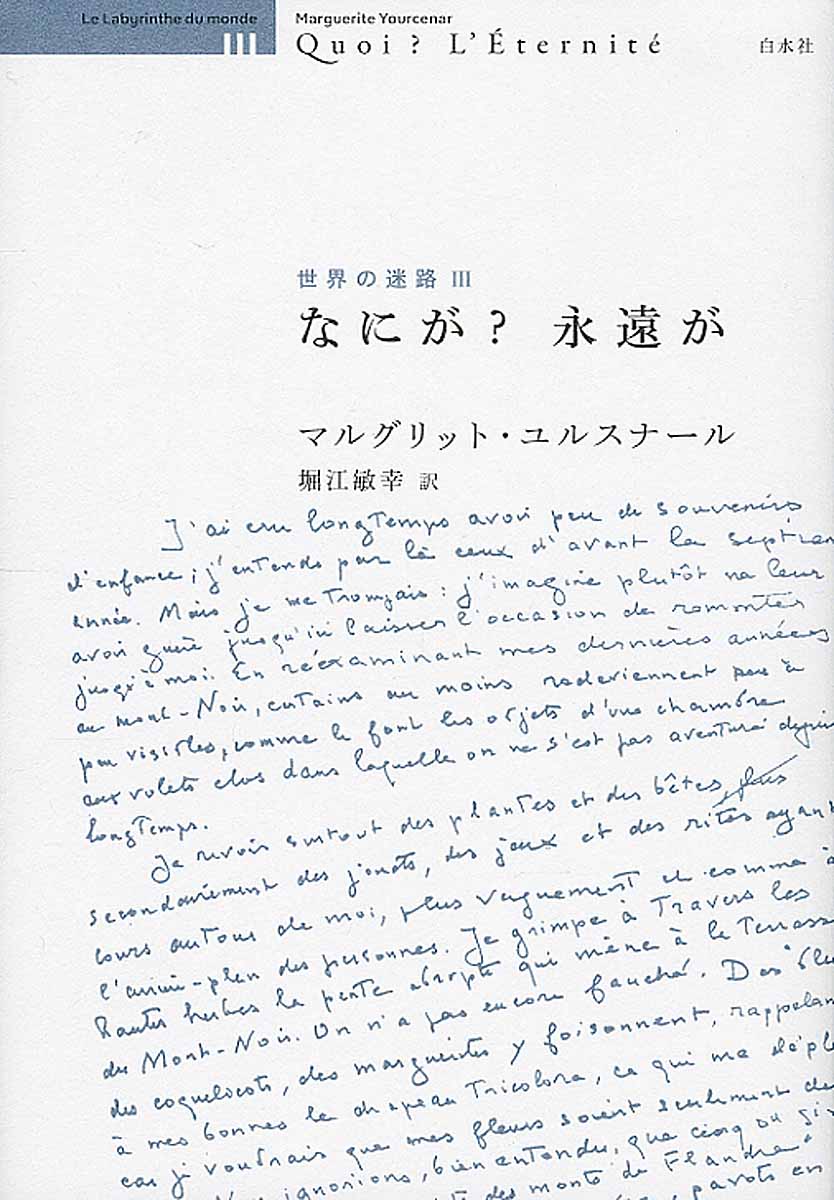 Le Labyrinthe du monde
III
Marguerite Yourcenar
Quoi ? L'Éternité
白水社
世界の迷路 III
なにが? 永遠が
マルグリット・ユルスナール
堀江敏幸 訳
J'ai cru longtemps avoir peu de souvenirs
d'enfance ; j'entends par là ceux d'avant la septièm
année. Mais je me trompais : j'imagine plutôt ne leur
avoir guère jusqu'ici laisser l'occasion de remonter
jusqu'à moi. En réexaminant mes dernières années
au Mont-Noir, certains au moins redeviennent peu à
peu visibles, comme le font les objets d'une chambre
aux volets clos dans laquelle on ne s'est pas aventuré depuis
longtemps.
Je revois surtout des plantes et des bêtes, plus
secondairement des jouets, des jeux et des rites ayant
cours autour de moi, plus vaguement et comme à
l'arrière-plan des personnes. Je grimpe à travers les
hautes herbes la pente abrupte qui mène à la terrasse
du Mont-Noir. On n'a pas encore fauché. Des bleu
des coquelicots, des marguerites y foisonnent, rappelan
à mes bonnes le drapeau tricolore, ce qui me dépl
car je voudrais que mes fleurs soient seulement de
ignorions, bien entendu, que cinq ou si
des monts de Flandre
pavots en